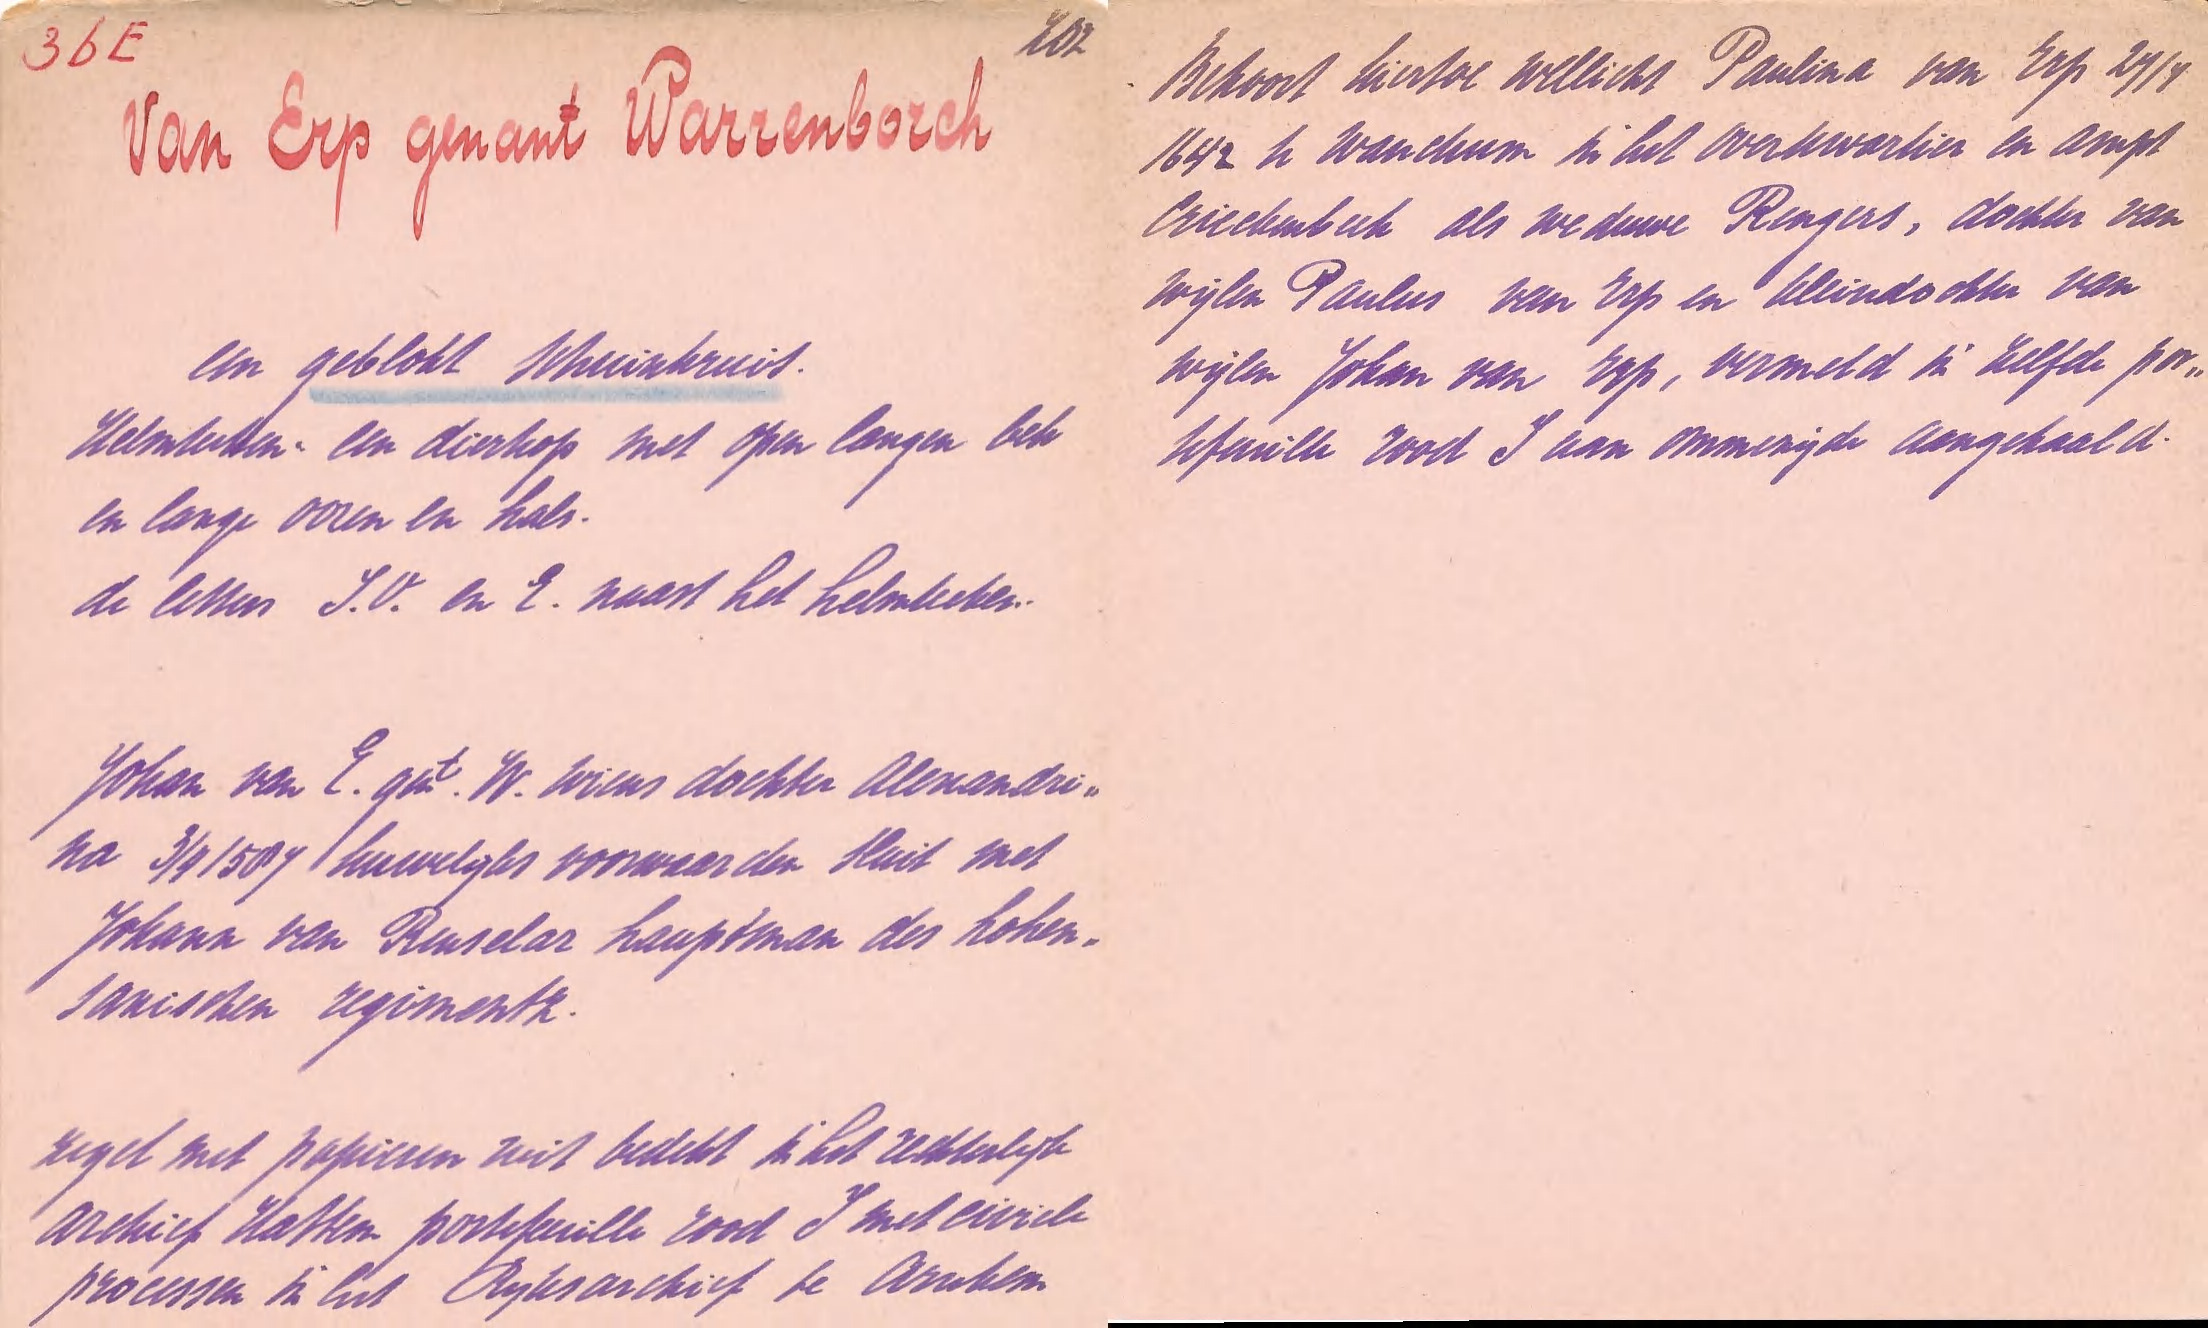 36E
202
Van Erp genant Warrenborch
een geblokt schuinkruis.
Helmteeken: een dierkop met open langen bek
en lange ooren en hals.
de letters J.V. en E. naast het helmteeken.
Johan van E. gnt. W. wiens dochter Alexandri„
na 3/9 1587 huwelijks voorwaarden sluit met
Johann van Renselar hauptman des hohen„
saxischen regimentz.
zegel met papieren ruit bedekt in het rechterlijk
archief Hattem portefeuille rood I met civiele
processen in het Rijksarchief te Arnhem
Behoort hiertoe wellicht Paulina van Erp 27/7
1642 te Wanckum in het overkwartier en ampt
Crieckenbeek als weduwe Rengers, dochter van
wijlen Paulus van Erp en kleindochter van
wijlen Johan van Erp, vermeld in zelfde por„
tefeuille rood I aan ommezijde aangehaald.